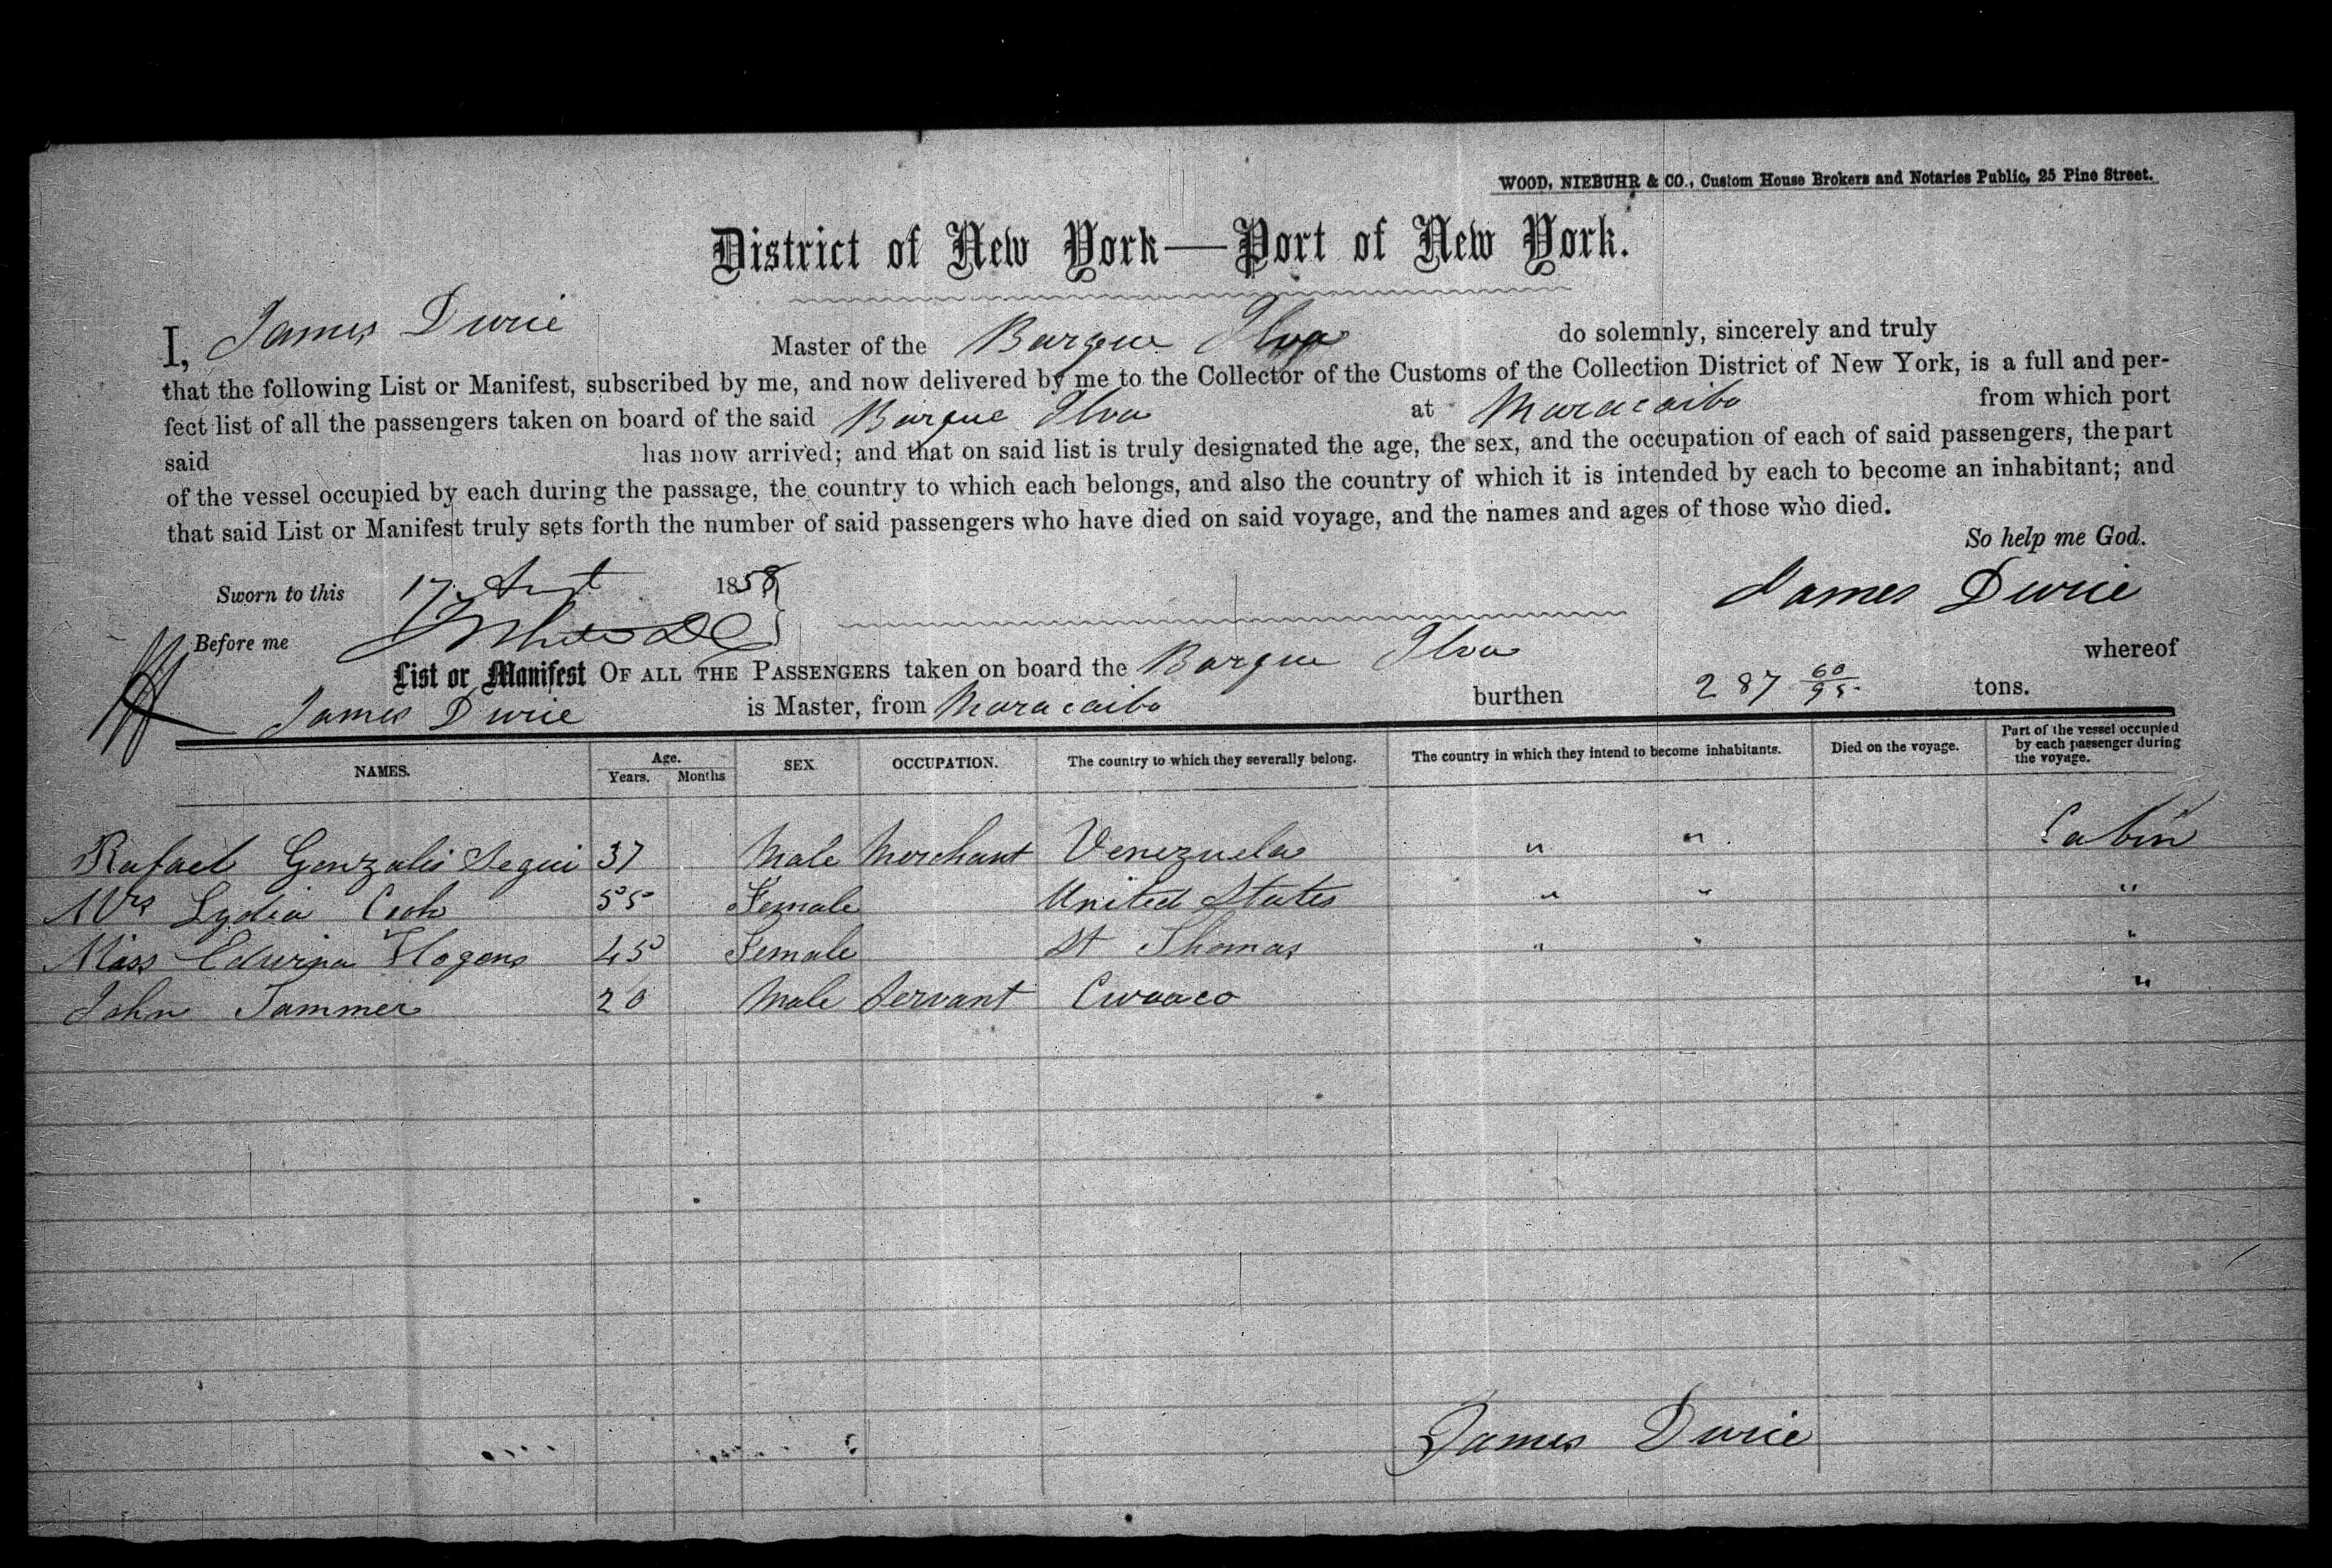 WOOD, NIEBUHR & CO., Custom House Brokers and Notaries Public, 25 Pine Street.
District of New York—Port of New York.
I, James Durie Master of the Barque Ilva do solemnly, sincerely and truly
that the following List or Manifest, subscribed by me, and now delivered by me to the Collector of the Customs of the Collection District of New York, is a full and per-
fect list of all the passengers taken on board of the said Barque Ilva at Maracaibo from which port
said has now arrived; and that on said list is truly designated the age, the sex, and the occupation of each of said passengers, the part
of the vessel occupied by each during the passage, the country to which each belongs, and also the country of which it is intended by each to become an inhabitant; and
that said List or Manifest truly sets forth the number of said passengers who have died on said voyage, and the names and ages of those who died.
So help me God.
Sworn to this 17 1858 James Durie
Before me
List or Manifest OF ALL THE PASSENGERS taken on board the Barque Ilva whereof
James Durie is Master, from Maracaibo burthen 287 60/95 tons.
NAMES. Age. Years. Months SEX. OCCUPATION. The country to which they severally belong. The country in which they intend to become inhabitants. Died on the voyage. Part of the vessel occupied by each passenger during the voyage.
Rafael Gonzalis Segui 37 Male Merchant Venezuela " " Cabin
Mrs Lydia 55 Female United States " " "
Miss Edwina 45 Female St Thomas " " "
John Jammer 20 Male Servant Curaaco "
James Durie